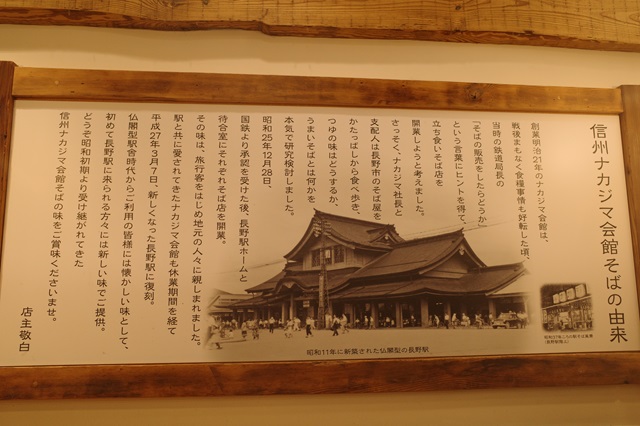 信州ナカジマ会館そばの由来
創業明治21年のナカジマ会館は、
戦後まもなく食糧事情も好転した頃、
当時の鉄道局長の
「そばの販売をしたらどうか」
という言葉にヒントを得て、
立ち食いそば店を
開業しようと考えました。
さっそく、ナカジマ社長と
支配人は長野市のそば屋を
かたっぱしから食べ歩き、
つゆの味はどうするか、
うまいそばとは何かを
本気で研究検討しました。
昭和25年12月28日、
国鉄より承認を受けた後、長野駅ホームと
待合室にそれぞれそば店を開業。
その味は、旅行客をはじめ地元の人々に親しまれました。
駅と共に愛されてきたナカジマ会館も休業期間を経て
平成27年3月7日、新しくなった長野駅に復刻。
仏閣型駅舎時代からご利用の皆様には懐かしい味として、
初めて長野駅に来られる方々には新しい味でご提供。
どうぞ昭和初期より受け継がれてきた
信州ナカジマ会館そばの味をご賞味くださいませ。
店主敬白
昭和11年に新築された仏閣型の長野駅